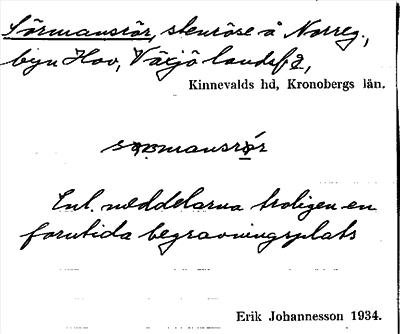 Sörmansrör, stenröse å Norreg.,
byn Hov, Växjö landsf.,
Kinnevalds hd, Kronobergs län.
sørmansrǿr
Enl. meddelarna troligen en
forntida begravningsplats
Erik Johannesson 1934.